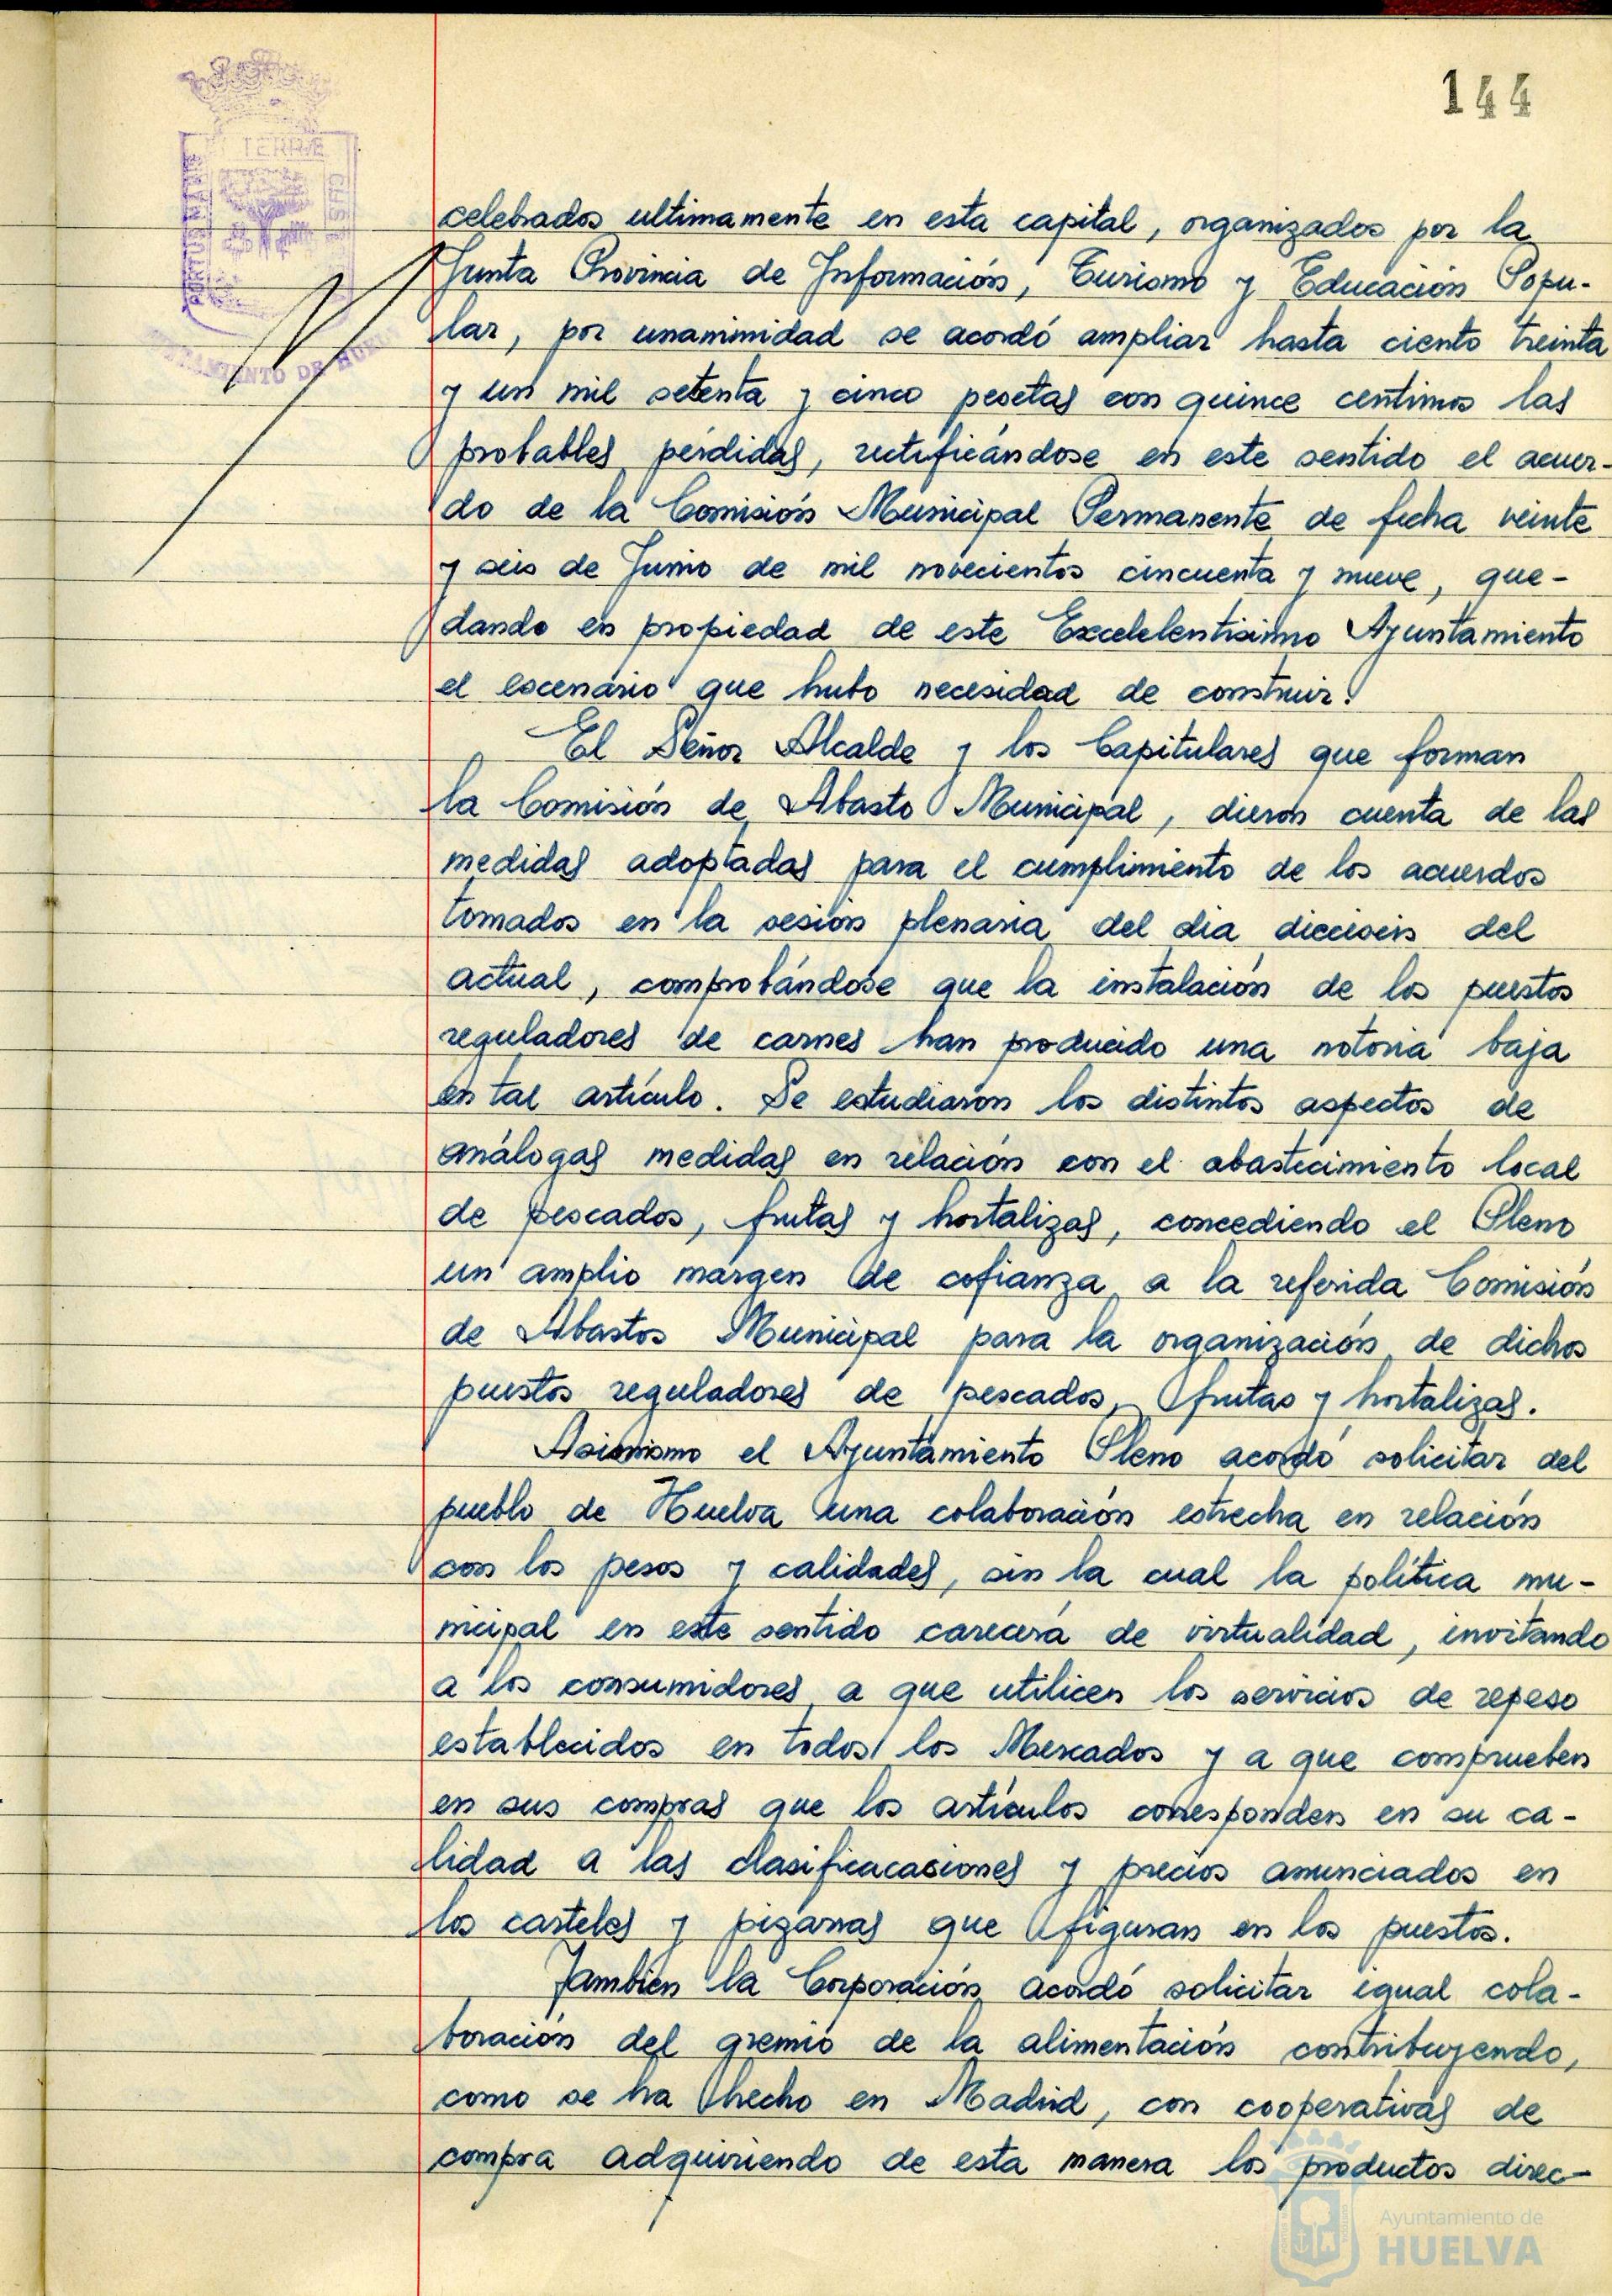 144
TERRÆ
PORTUS MARIS
AYUNTAMIENTO DE HUELVA
celebrados ultimamente en esta capital, organizados por la
Junta Provincia de Información, Turismo y Educación Popu-
lar, por unanimidad se acordó ampliar hasta ciento treinta
y un mil setenta y cinco pesetas con quince centimos las
probables pérdidas, rectificándose en este sentido el acuer-
do de la Comisión Municipal Permanente de fecha veinte
y seis de Junio de mil novecientos cincuenta y nueve, que-
dando en propiedad de este Excelelentisimo Ayuntamiento
el escenario que hubo necesidad de construir.
El Señor Alcalde y los Capitulares que forman
la Comisión de Abasto Municipal, dieron cuenta de las
medidas adoptadas para el cumplimiento de los acuerdos
tomados en la sesión plenaria del dia dieciseis del
actual, comprobándose que la instalación de los puestos
reguladores de carnes han producido una notoria baja
en tal artículo. Se estudiaron los distintos aspectos de
análogas medidas en relación con el abastecimiento local
de pescados, frutas y hortalizas, concediendo el Pleno
un amplio margen de cofianza a la referida Comisión
de Abastos Municipal para la organización de dichos
puestos reguladores de pescados, frutas y hortalizas.
Asimismo el Ayuntamiento Pleno acordó solicitar del
pueblo de Huelva una colaboración estrecha en relación
con los pesos y calidades, sin la cual la política mu-
nicipal en este sentido carecerá de virtualidad, invitando
a los consumidores a que utilicen los servicios de repeso
establecidos en todos los Mercados y a que comprueben
en sus compras que los artículos corresponden en su ca-
lidad a las clasificacaciones y precios anunciados en
los carteles y pizarras que figuran en los puestos.
Tambien la Corporación acordó solicitar igual cola-
boración del gremio de la alimentación contribuyendo,
como se ha hecho en Madrid, con cooperativas de
compra adquiriendo de esta manera los productos direc-
Ayuntamiento de
HUELVA